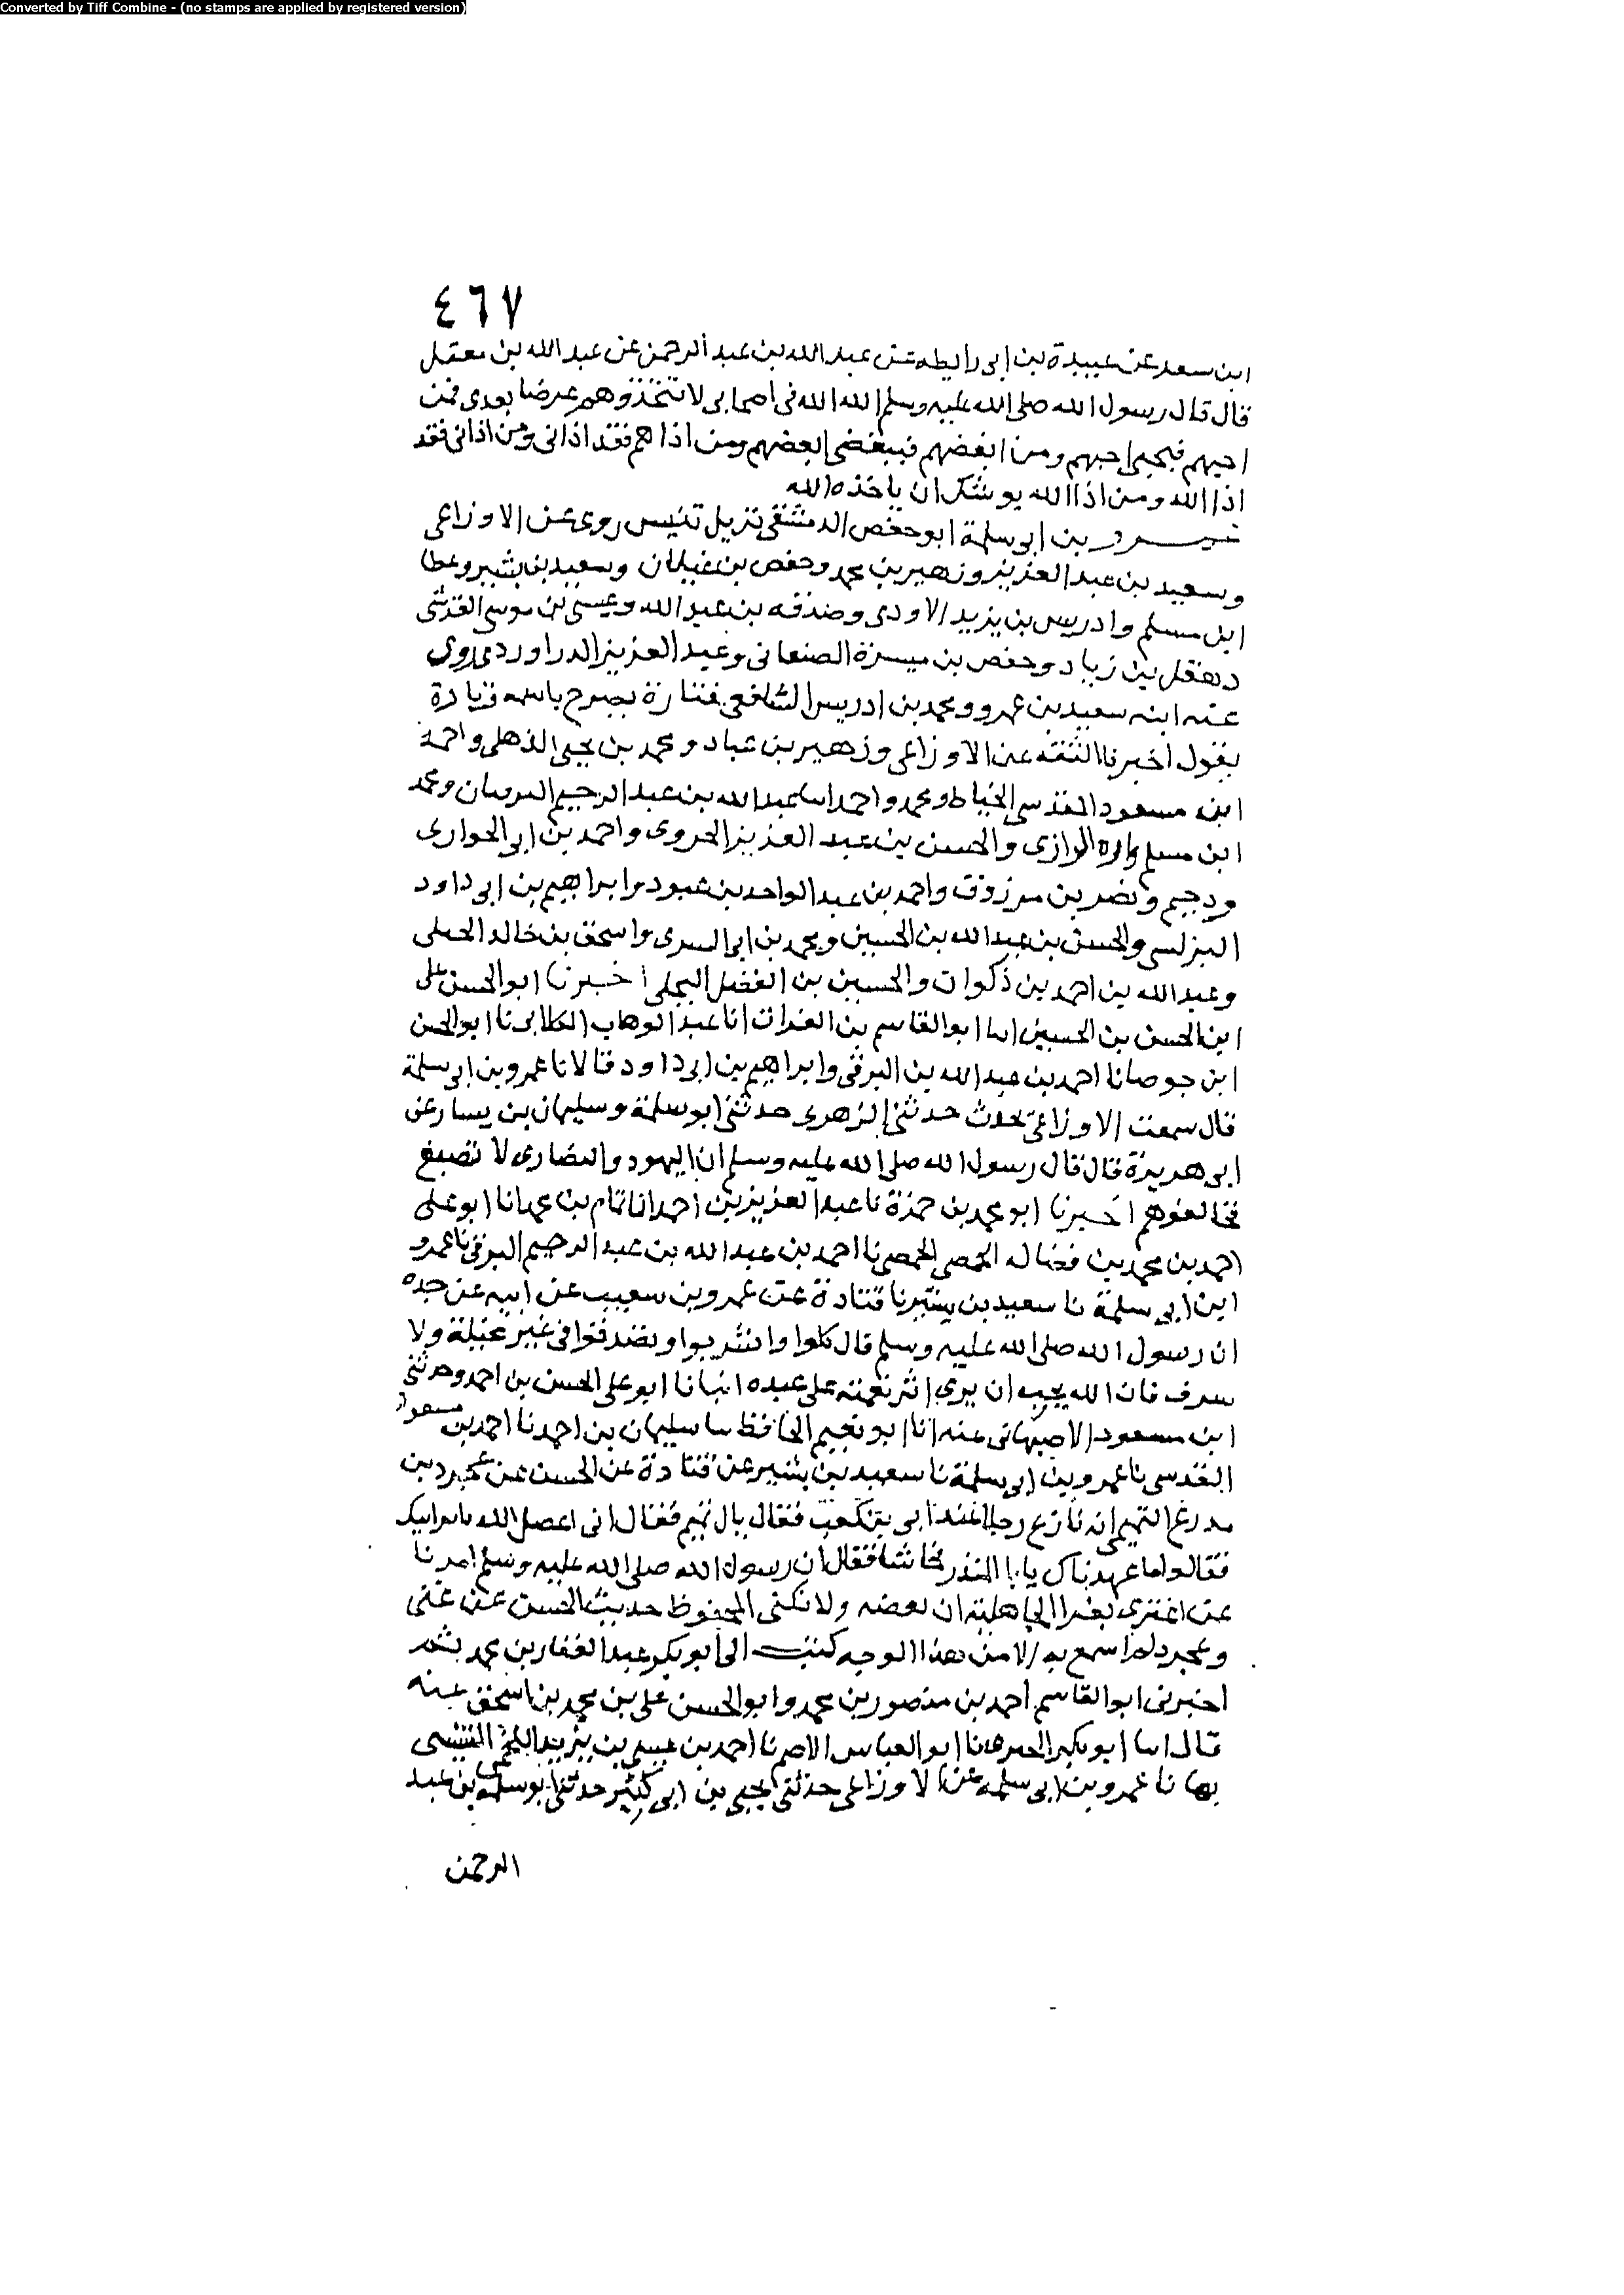 Converted by Tiff Combine - (no stamps are applied by registered version)
٤٦٧
ابن سعد عن عبيدة بن ابى رايطه عن عبد الله بن عبد الرحمن عن عبد الله بن معقل
قال قال رسول الله صلى الله عليه وسلم الله الله فى اصحابى لا تتخذوهم عرضا بعدى فمن
احبهم فبحبى احبهم ومن ابغضهم فببغضى ابغضهم ومن اذاهم فقد اذانى ومن اذانى فقد
اذا الله ومن اذا الله يوشك ان ياخذه الله
عمرو بن ابى سلمة ابو حفص الدمشقى نزيل تنيس روى عن الاوزاعى
وسعيد بن عبد العزيز وزهير بن محمد وحفص بن غيلان وسعيد بن بشير وعطا
ابن مسلم وادريس بن يزيد الاودى وصدقه بن عبد الله وعيسى بن موسى القرشى
وهقل بن زياد وحفص بن ميسرة الصنعانى وعبد العزيز الدراوردى روى
عنه ابنه سعيد بن عمرو ومحمد بن ادريس الشافعى فتارة يصرح باسمه وتارة
يقول اخبرنا الثقه عن الاوزاعى وزهير بن عباد ومحمد بن يحيى الذهلى واحمد
ابن مسعود المقدسى الخياط ومحمد واحمد ابنا عبد الله بن عبد الرحيم البرقيان ومحمد
ابن مسلم واره الرازى والحسن بن عبد العزيز الجروى واحمد بن ابى الحوارى
ودحيم ونصر بن مرزوق واحمد بن عبد الواحد بن عبود وابراهيم بن ابى داود
البرلسى والحسن بن عبد الله بن الحسين ومحمد بن ابى السرى واسحق بن خالد
وعبد الله بن احمد بن ذكوان والحسين بن الفضل البجلى اخبرنا ابو الحسن على
ابن الحسن بن الحسين انا ابو القاسم بن الفرات انا عبد الوهاب الكلابى نا ابو الحسن
ابن جوصا نا احمد بن عبد الله بن البرقى وابراهيم بن ابى داود قالا نا عمرو بن ابى سلمة
قال سمعت الاوزاعى يحدث حدثنى الزهرى حدثنى ابو سلمة وسليمان بن يسار عن
ابى هريرة قال قال رسول الله صلى الله عليه وسلم ان اليهود والنصارى لا تصبغ
فخالفوهم اخبرنا ابو محمد بن حمزة نا عبد العزيز بن احمد انا تمام بن محمد انا ابو على
احمد بن محمد بن فضاله الحمصى الحمصى نا احمد بن عبد الله بن عبد الرحيم البرقى نا عمرو
ابن ابى سلمة نا سعيد بن بشير نا قتادة عن عمرو بن سعيب عن ابيه عن جده
ان رسول الله صلى الله عليه وسلم قال كلوا واشربوا وتصدقوا فى غير مخيلة ولا
سرف فان الله يحب ان يرى اثر نعمته على عبده انبانا ابو على الحسن بن احمد وحدثنى
ابن مسعود الاصبهانى عنه انا ابو نعيم الحافظ نا سليمان بن احمد نا احمد بن مسعود
المقدسى نا عمرو بن ابى سلمة نا سعيد بن بشير عن قتادة عن الحسن عن عجرد بن
مدرع التميمى انه نازع رجلا عند ابى بن كعب فقال يال تميم فقال ابى اعضك الله باير ابيك
فقالوا ما عهدناك يا ابا المنذر فحاشا فقال ان رسول الله صلى الله عليه وسلم امرنا
من اعتزى بعزا الجاهلية ان نعضه ولا نكنى المحفوظ حديث الحسن عن عتى
وعجرد لم اسمع به الا من هذا الوجه كتب الى ابو بكر عبد الغفار بن محمد ثم
اخبرنى ابو القاسم احمد بن منصور بن محمد وابو الحسن على بن محمد بن اسحق عنه
قال انا ابو بكر الحيرى نا ابو العباس الاصم نا احمد بن عيسى بن يزيد اللخمى التنيسى
بها نا عمرو بن ابى سلمه عن الاوزاعى حدثنى يحيى بن ابى كثير حدثنى ابو سلمة بن عبد
الرحمن